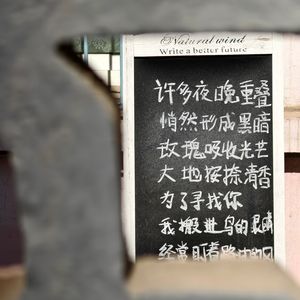 Natural wind
Write a better future
许多夜晚重叠
悄然形成黑暗
玫瑰吸收光芒
大地按捺清香
为了寻找你
我搬进鸟的眼睛
经常盯着路过的风